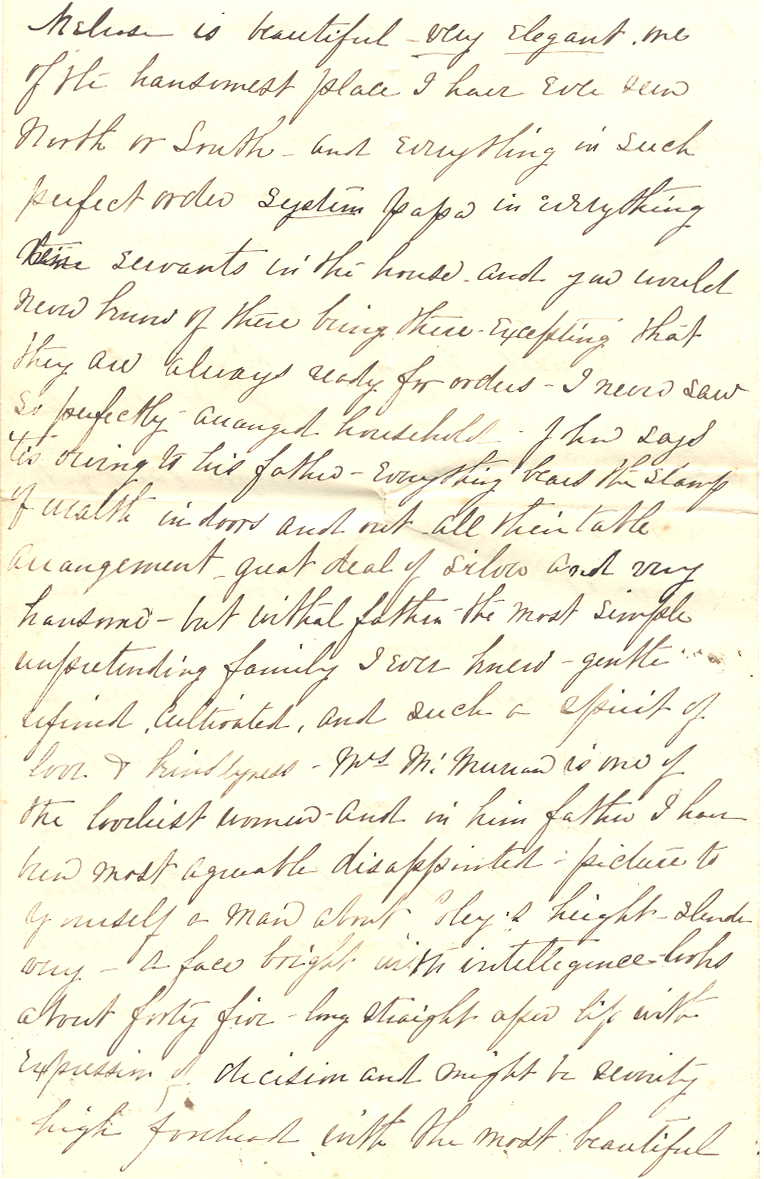 Melrose is beautiful - very elegant. one
of the hansomest place I have Ever seen
North or South - and Everything in such
perfect order system Papa in everything
servants in the house - and you would
never know of there being there - Excepting that
they are always ready for orders - I never saw
so perfectly - arranged household - John says
tis owing to his father - Everything bears the stamp
of wealth in doors and out all their table
arrangement - great deal of silver and very
hansome - but withal father - the most simple
unpretending family I ever knew - gentle
refined, cultivated, and such a spirit of
love & kindlyness - Mrs McMurran is one of
the loveliest women - and in him father I have
been most agreeable disappointed - picture to
yourself a man about height - slender
very - a face bright with intelligence - looks
about forty five - long straight lip with
Expression of decision and might be severity
high forehead with the most beautiful